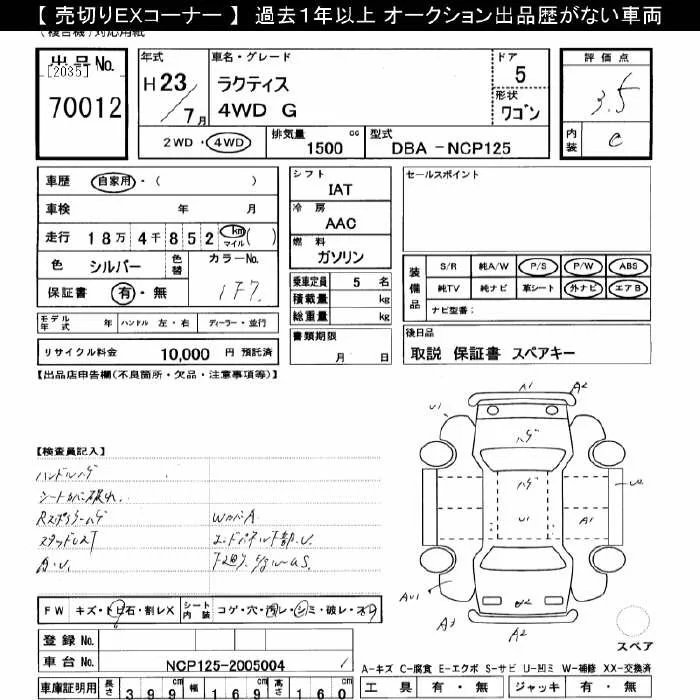 【 売切りEXコーナー 】 過去1年以上 オークション出品歴がない車両
(複合機)対応用紙
出品No.
[2035]
70012
年式
H 23/7月
車名・グレード
ラクティス
4WD G
ドア
5
形状
ワゴン
評価点
3.5
内装
C
2WD・4WD
排気量
1500 cc
型式
DBA - NCP125
車歴 自家用・( )
車検 年 月
走行 18万 4千 852 km マイル ( )
色 シルバー 色替
カラーNo.
1F7
保証書 有・無
シフト
IAT
冷房
AAC
燃料
ガソリン
乗車定員 5 名
積載量 kg
総重量 kg
書類期限
月 日
セールスポイント
装備品
S/R 純A/W P/S P/W ABS
純TV 純ナビ 革シート 外ナビ エアB
ナビ型番:
後日品
取説 保証書 スペアキー
モデル年式 年 ハンドル 左・右 ディーラー・並行
リサイクル料金 10,000 円 預託済
【出品店申告欄(不良箇所・欠品・注意事項等)】
【検査員記入】
ハンドルハゲ
シートカバー破れ
Rスポイラーハゲ
スタッドレス
A.U.
WカバーA
エンドパネル下部.U.
A1 A2
U1
ハゲ
ハゲ
U1
A1
A2
FW キズ・トビ石・割レX
シート内装 コゲ・穴・汚レ・シミ・破レ・スレ
登録No.
車台No. NCP125-2005004
スペア
A-キズ C-腐食 E-エクボ S-サビ U-凹ミ W-補修 XX-交換済
車庫証明用 長さ 399 cm 幅 169 cm 高さ 160 cm
工具 有・無 ジャッキ 有・無